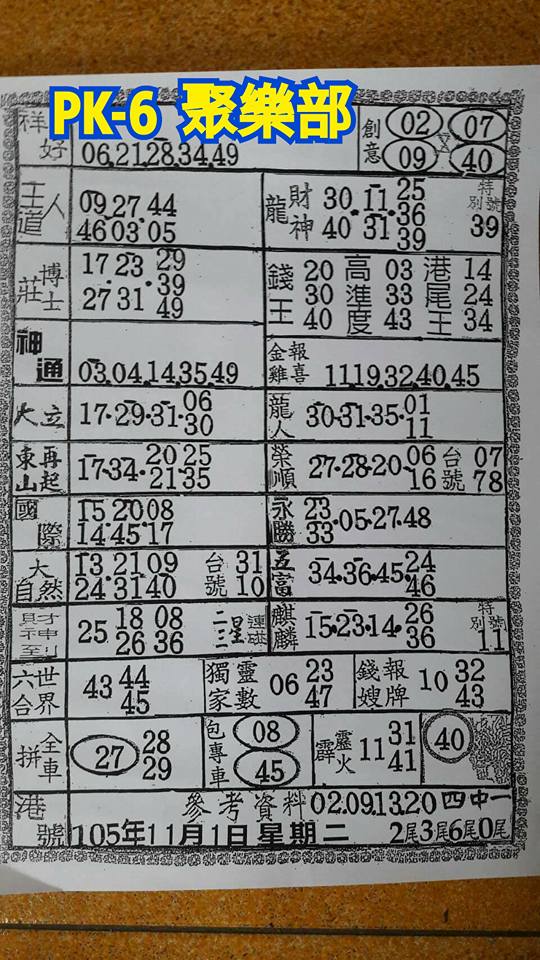 PK-6 聚樂部
祥好 06.21.28.34.49
創意 02 07 09 40
王道人 09.27.44
46.03.05
龍 財神 30.11.25
40.31.36
39
特別號 39
莊博士 17 23 29
39
27 31 49
錢王 20 30 40
高準度 03 33 43
港尾王 14 24 34
神通 03.04.14.35.49
金雞報喜 11.19.32.40.45
大立 17.29.31.06
30
龍人 30.31.35.01
11
東山再起 17.34.20 25
21.35
榮順 27.28.20.06
16
台號 07
78
國際 15.20.08
14.45.17
永勝 23
33.05.27.48
大自然 13.21.09
24 31 40
台號 31
10
五富 34.36.45.24
46
財神到 25 18 08
26 36
二三星連碰
麒麟 15.23.14.26
36
特別號 11
六合世界 43 44
45
獨家靈數 06 23
47
錢嫂報牌 10 32
43
拼全車 27 28
29
包專車 08
45
霹靂火 11 31
41
40
港號
參考資料 02.09.13.20 四中一
105年11月1日星期二 2尾3尾6尾0尾